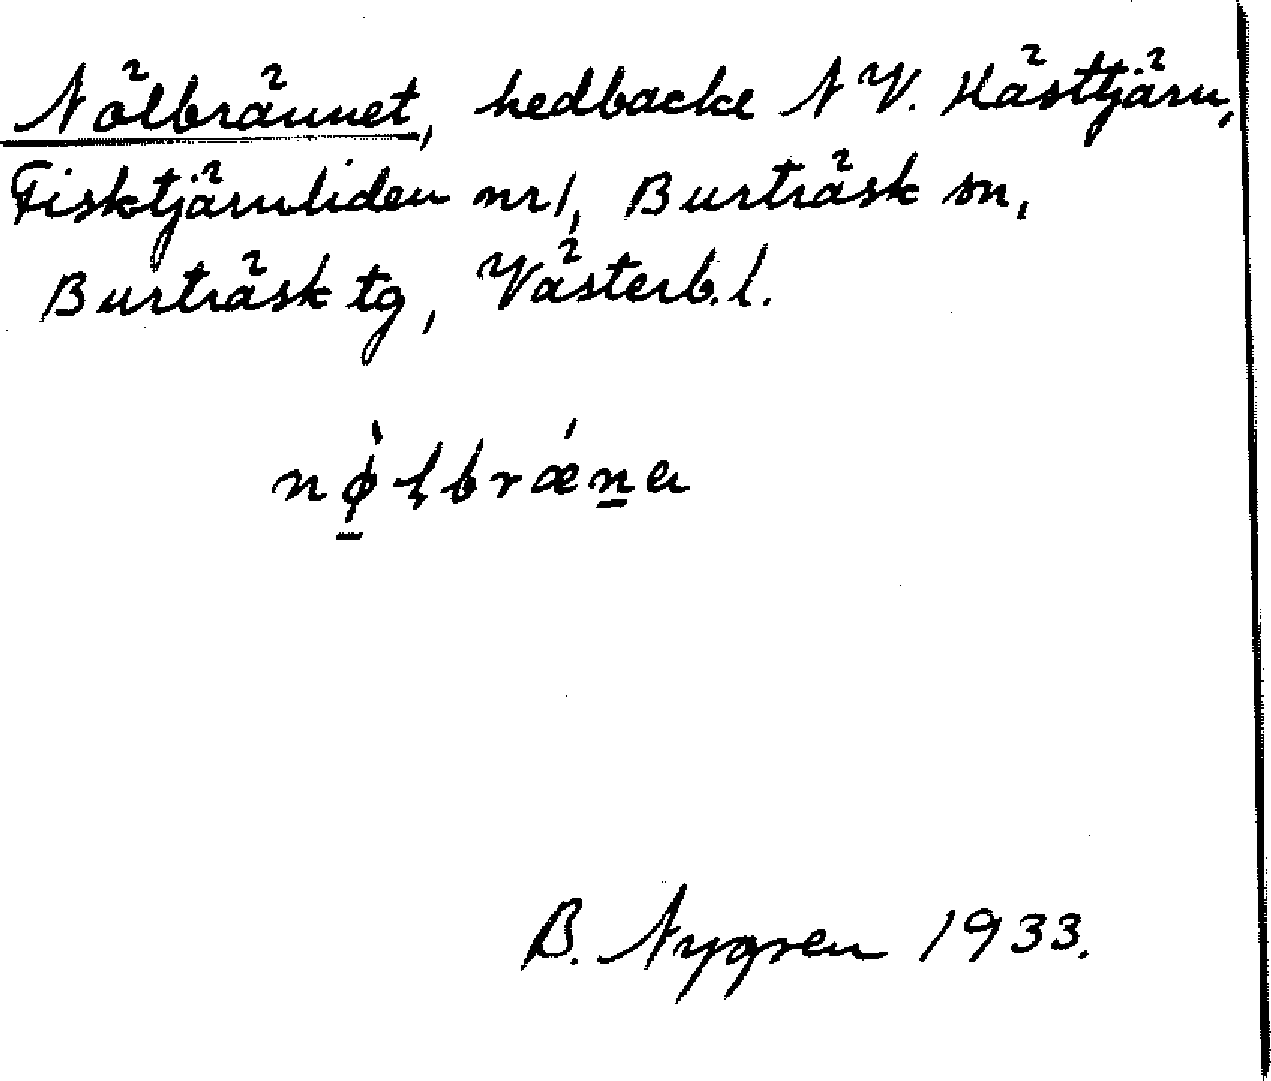 Nölbrännet, hedbacke N V. Hästtjärn,
Fisktjärnliden nr 1, Burträsk sn,
Burträsk tg, Västerb. l.
nø̠̀ɬbrǽn̠a
B. Nygren 1933.